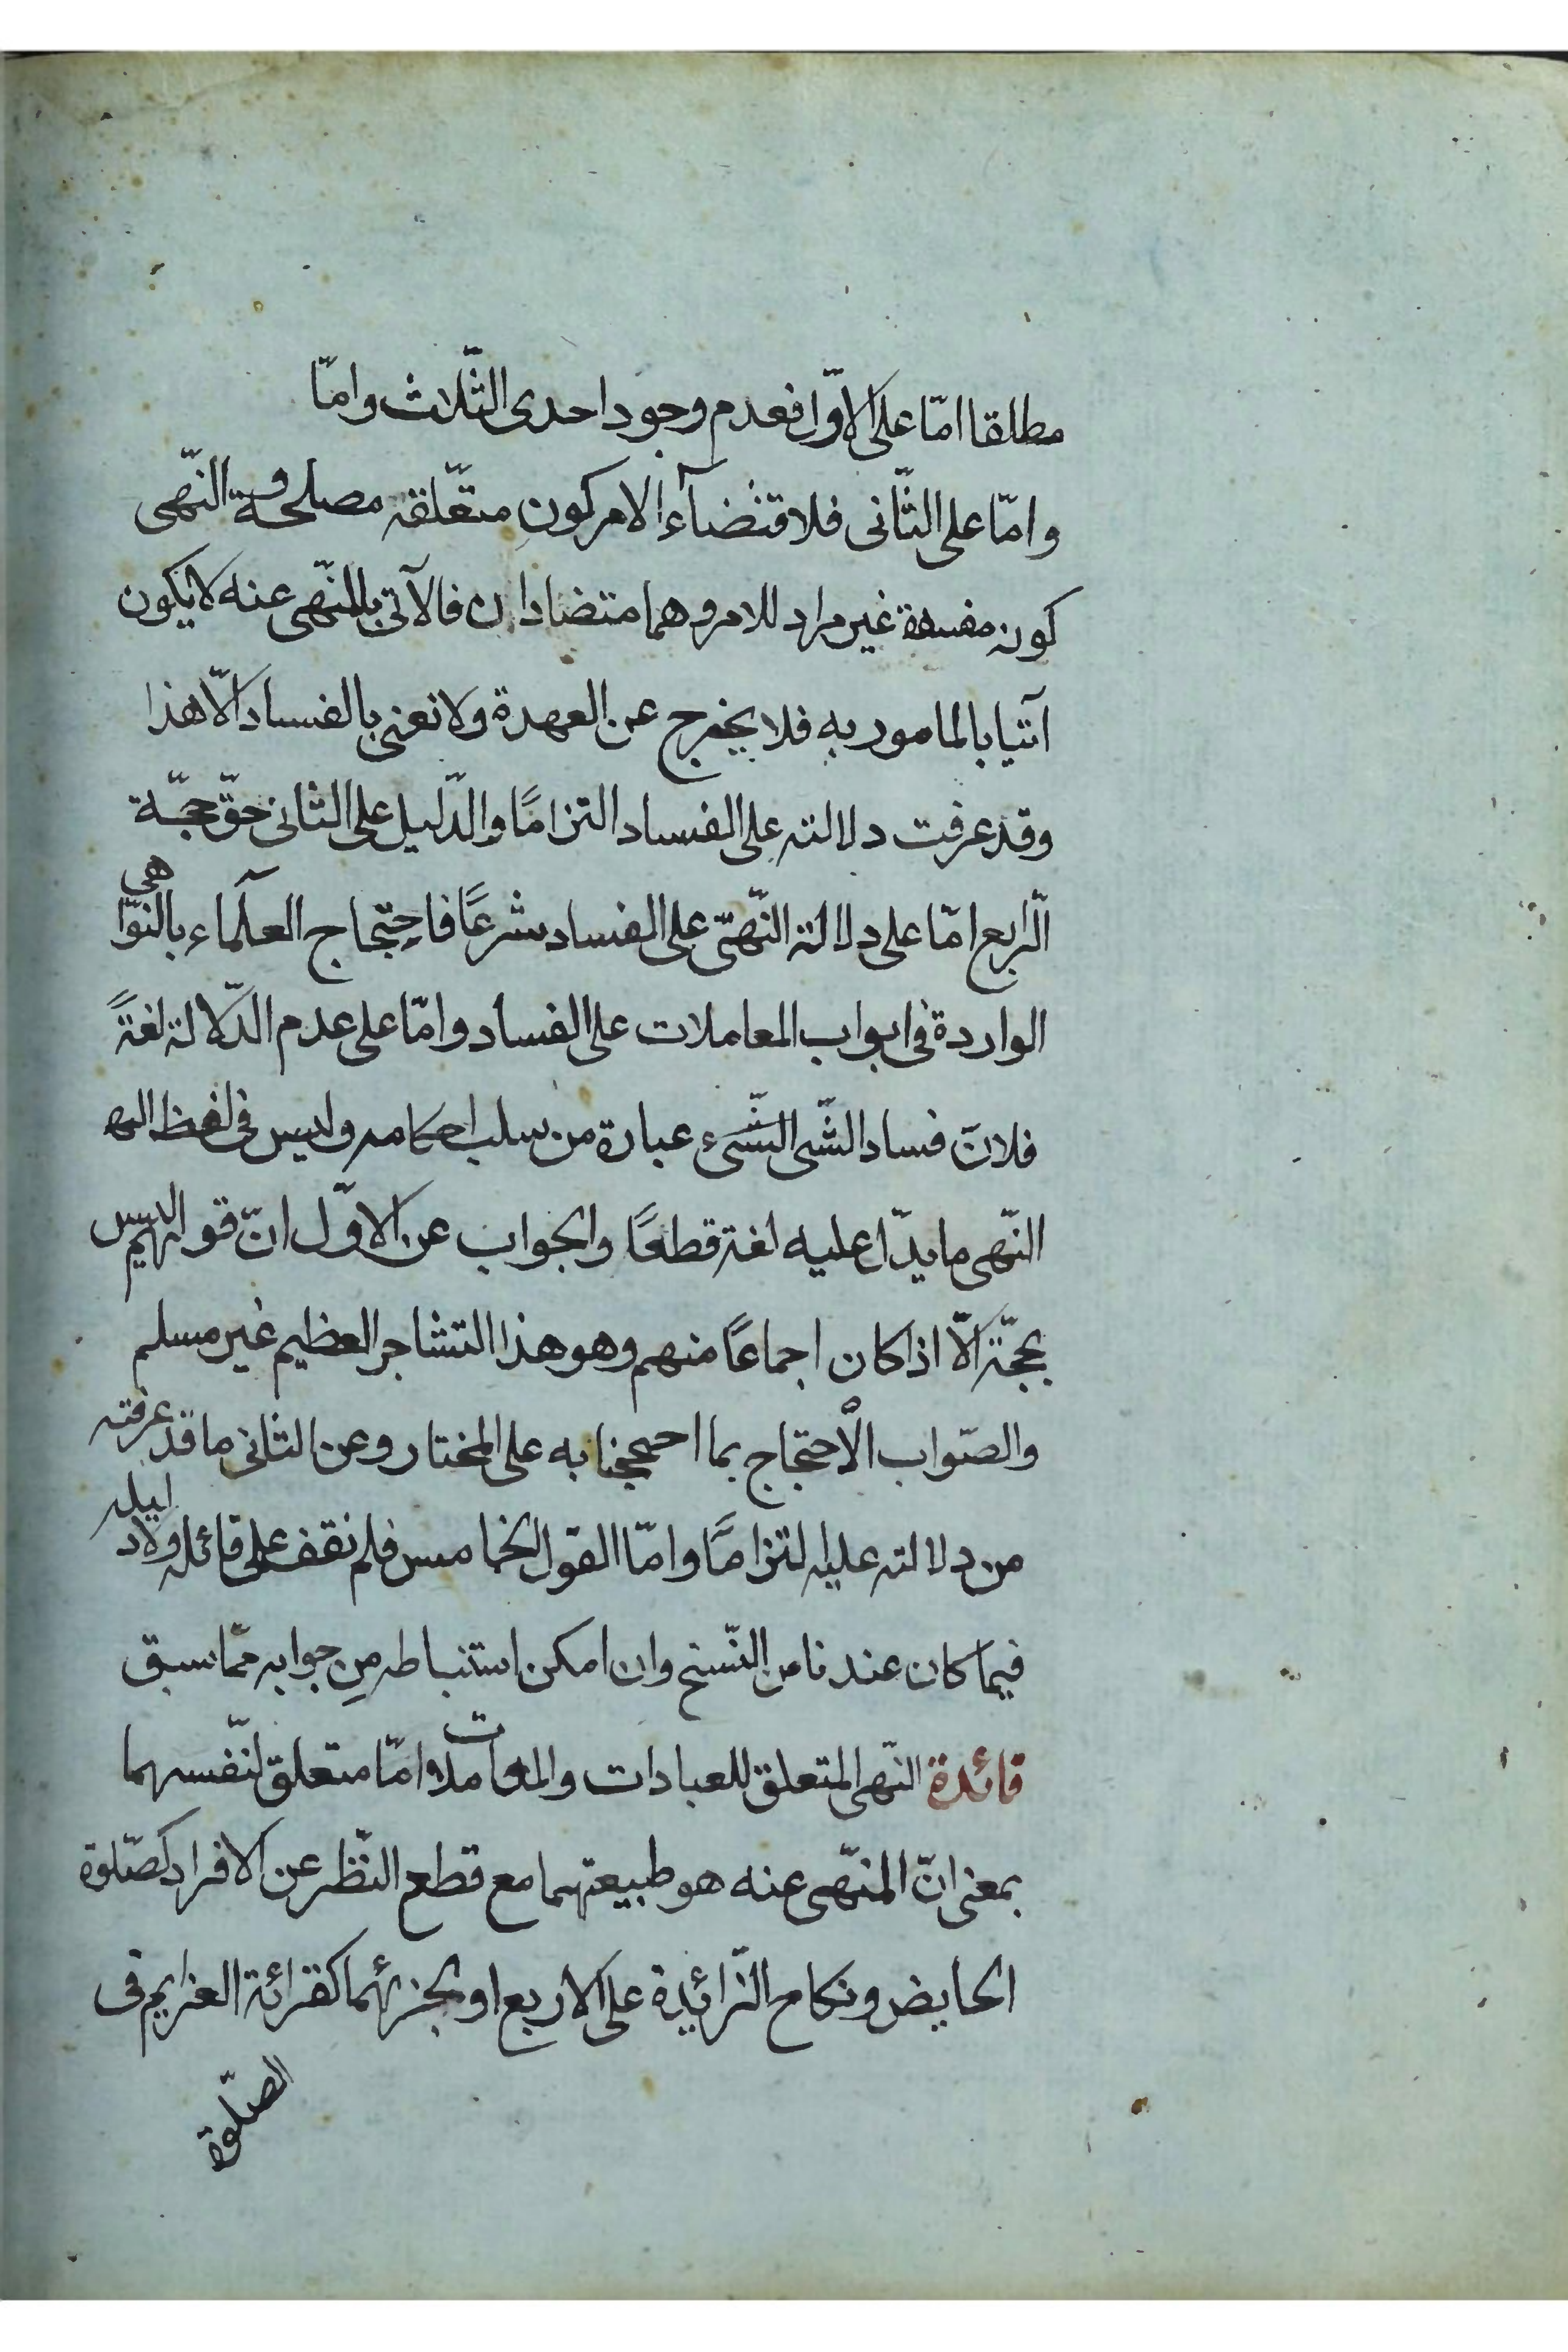 مطلقا امّا على الاوّل فعدم وجود احدى الثّلاث وامّا
وامّا على الثّانى فلاقتضآء الامر كون متعّلقه مصلحة و النّهى
كونه مفسدة غير مراد للامر وهما متضادان فالآتى بالمنّهى عنه لا يكون
آتيا بالمامور به فلا يخرج عن العهدة ولا نعنى بالفساد الّا هذا
وقد عرفت دلالته على الفساد التزامًا والدّليل على الثانى حقّ حجّة
الرّابع امّا على دلالة النّهى على الفساد شرعًا فاحتجاج العلماء بالنوّاهى
الواردة فى ابواب المعاملات على الفساد وامّا على عدم الدّلالة لغةً
فلانّ فساد الشّى الشّىء عبارة من سلب احكامه وليس فى لفظ النه
النّهى ما يدّل عليه لغة قطعًا والجواب عن الاوّل انّ قولهم ليس
بحجّة الّا اذا كان اجماعًا منهم وهو هذا التشاجر العظيم غير مسلم
والصّواب الْاحتجاج بما احججنا به على المختار وعن الثانى ما قد عرفته
من دلالته عليه لتزامًا وامّا القول الخامس فلم نقف على قائله ولا دليله
فيما كان عندنا من النّسخ وان امكن استنباطه مِن جوابه ممّا سبق
فائدة النّهى المتعلق للعبادات والمعاملات امّا متعلق لنّفسهما
بمعنى انّ المنّهى عنه هو طبيعتهما مع قطع النّظر عن الافراد كصّلوة
الحايض ونكاح الزّائدة على الاربع او بجزئهما كقرائة العزايم فى
الصّلوة